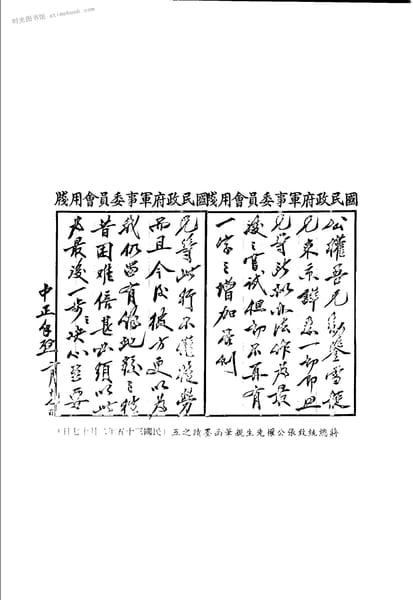 时光图书馆 · xtimebook.com
國民政府軍事委員會用牋
公權吾兄勛鑒雪艇
兄來京詳悉一切即照
兄等所擬辦法作為最
後之嘗試但切不再有
一字之增加否則
國民政府軍事委員會用牋
兄等此行不僅徒勞
而且今後彼方更以為
我仍留有
昔困難倍甚必須以此
為最後一步之決心
中正手啟
蔣總統致張公權先生親筆函墨蹟之五(民國三十五年 月十七日)